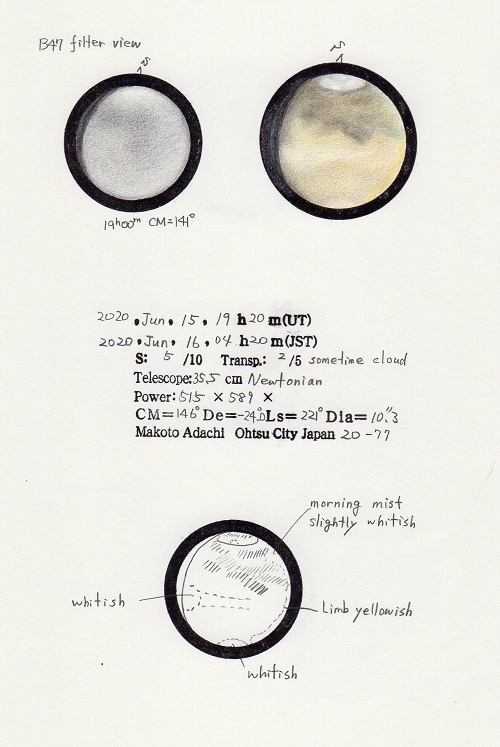 B47 filter view
S
S
19h00m CM=141°
2020, Jun, 15, 19 h 20 m(UT)
2020, Jun, 16, 04 h 20 m(JST)
S: 5 /10 Transp.: 2 /5 sometime cloud
Telescope: 35.5 cm Newtonian
Power: 515 × 589 ×
CM=146° De=-24.0 Ls=221° Dia=10".3
Makoto Adachi Ohtsu City Japan 20-77
morning mist
slightly whitish
whitish
Limb yellowish
whitish